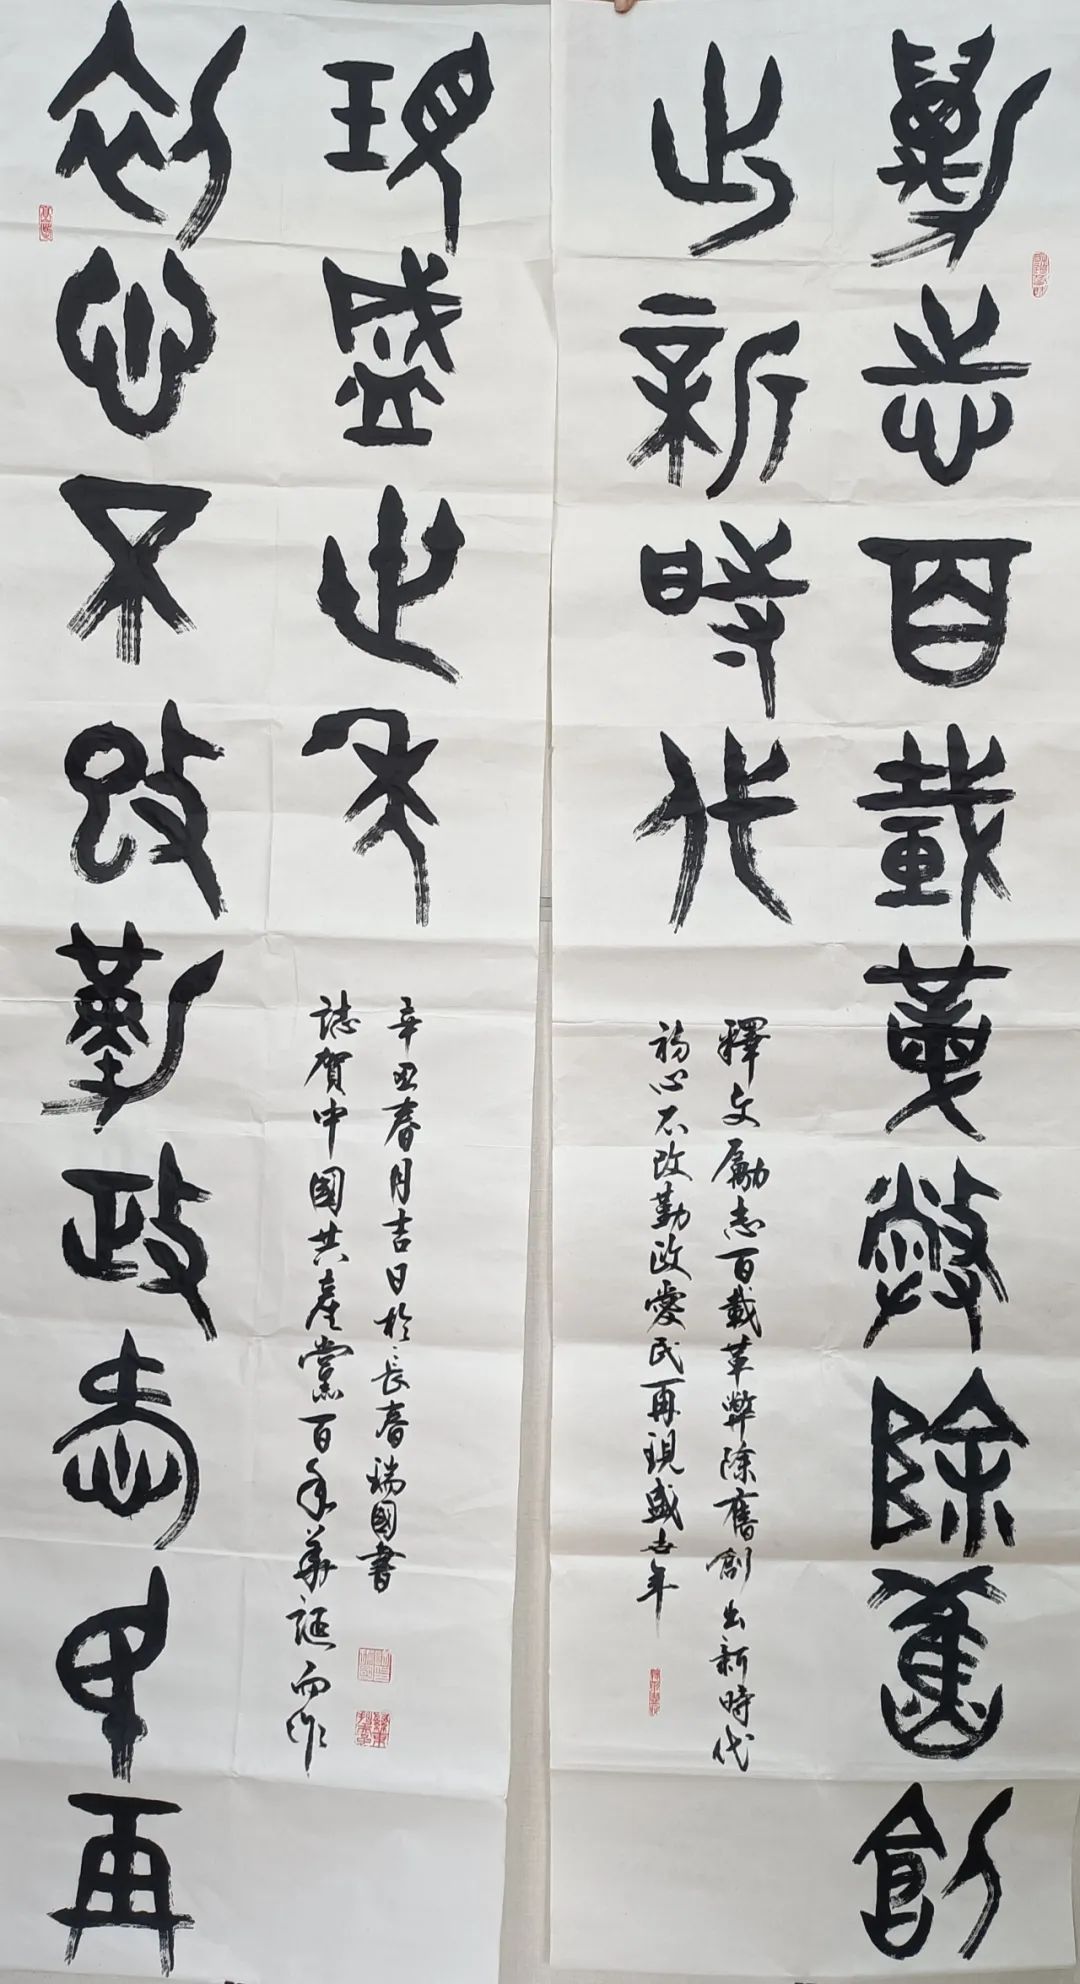 勵志百載革弊除舊創
出新時代
釋文勵志百載革弊除舊創出新時代
初心不改勤政愛民再現盛世年
初心不改勤政愛民再
現盛世年
辛丑春月吉日於長春瑞國書
誌賀中國共產黨百年華誕而作